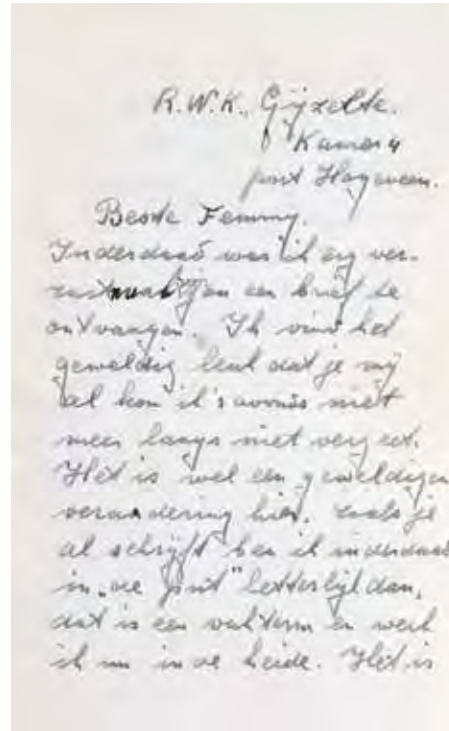 R.W.K. Gijzelte.
Kamer 4
post Hogeveen.
Beste Femmy.
Inderdaad was ik erg ver-
rast van jou een brief te
ontvangen. Ik vind het
geweldig leuk dat je mij
al kon ik 's avonds niet
meer langs niet vergeet.
Het is wel een geweldigen
verandering hier. zoals je
al schrijft ben ik inderdaad
in „de put" letterlijk dan,
dat is een vakterm en werk
ik nu in de heide. Het is